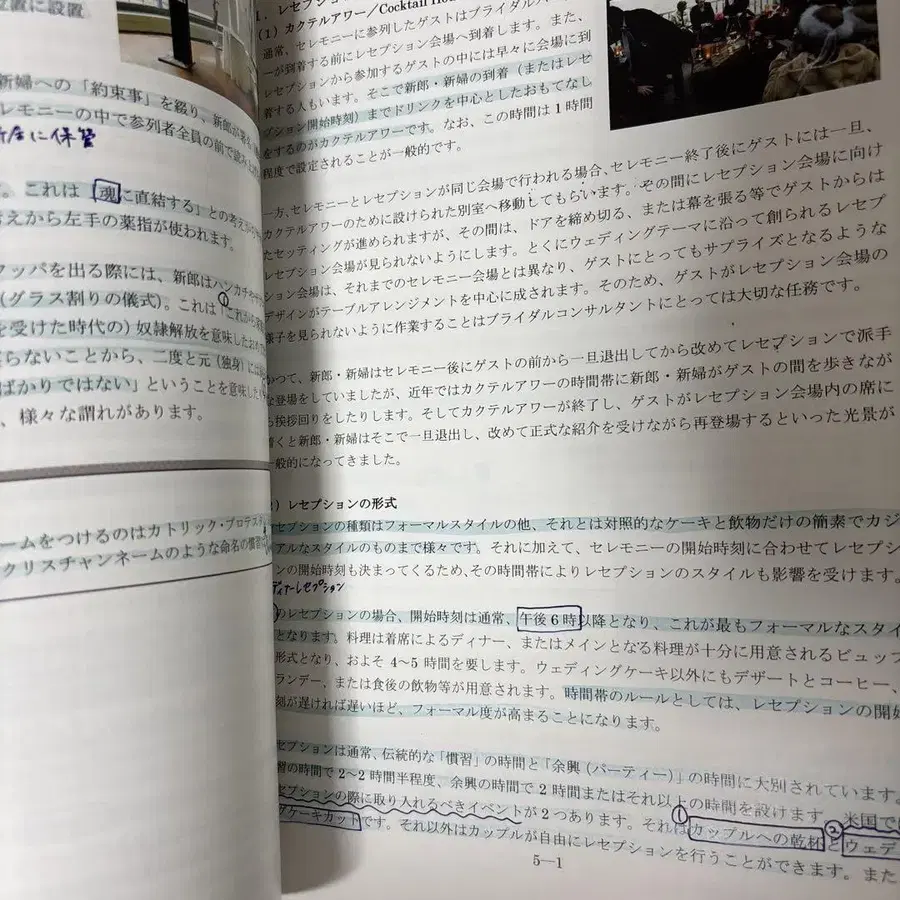 位置に設置
新婦への「約束事」を綴り、新郎が
レモニーの中で参列者全員の前で
に保管
。これは「魂に直結する」との考え
考えから左手の薬指が使われます。
フッパを出る際には、新郎はハンカチ
(グラス割りの儀式)。これは①「これから
を受けた時代の)奴隷解放を意味した
らないことから、二度と元(独身)には
ばかりではない」ということを意味した
、様々な謂れがあります。
ームをつけるのはカトリック・プロテス
クリスチャンネームのような命名の慣習
1. レセプション
(1) カクテルアワー/Cocktail Hou
通常、セレモニーに参列したゲストはブライダル
ーが到着する前にレセプション会場へ到着します。また、
レセプションから参加するゲストの中には早々に会場に到
着する人もいます。そこで新郎・新婦の到着(またはレセ
プション開始時刻)までドリンクを中心としたおもてなし
をするのがカクテルアワーです。なお、この時間は1時間
程度で設定されることが一般的です。
一方、セレモニーとレセプションが同じ会場で行われる場合、セレモニー終了後にゲストには一旦、
カクテルアワーのために設けられた別室へ移動してもらいます。その間にレセプション会場に向け
たセッティングが進められますが、その間は、ドアを締め切る、または幕を張る等でゲストからは
レセプション会場が見られないようにします。とくにウェディングテーマに沿って創られるレセプ
ション会場は、それまでのセレモニー会場とは異なり、ゲストにとってもサプライズとなるような
デザインがテーブルアレンジメントを中心に成されます。そのため、ゲストがレセプション会場の
様子を見られないように作業することはブライダルコンサルタントにとっては大切な任務です。
かつて、新郎・新婦はセレモニー後にゲストの前から一旦退出してから改めてレセプションで派手
な登場をしていましたが、近年ではカクテルアワーの時間帯に新郎・新婦がゲストの間を歩きなが
ら挨拶回りをしたりします。そしてカクテルアワーが終了し、ゲストがレセプション会場内の席に
着くと新郎・新婦はそこで一旦退出し、改めて正式な紹介を受けながら再登場するといった光景が
一般的になってきました。
)レセプションの形式
セプションの種類はフォーマルスタイルの他、それとは対照的なケーキと飲物だけの簡素でカジ
アルなスタイルのものまで様々です。それに加えて、セレモニーの開始時刻に合わせてレセプシ
ンの開始時刻も決まってくるため、その時間帯によりレセプションのスタイルも影響を受けます。
ディナーレセプション
のレセプションの場合、開始時刻は通常、午後6時以降となり、これが最もフォーマルなスタイ
となります。料理は着席によるディナー、またはメインとなる料理が十分に用意されるビュッフ
形式となり、およそ 4〜5 時間を要します。ウェディングケーキ以外にもデザートとコーヒー、
ランデー、または食後の飲物等が用意されます。時間帯のルールとしては、レセプションの開始
刻が遅ければ遅いほど、フォーマル度が高まることになります。
セプションは通常、伝統的な「慣習」の時間と「余興(パーティー)」の時間に大別されています。
習の時間で 2〜2 時間半程度、余興の時間で 2 時間またはそれ以上の時間を設けます。米国では
セプションの際に取り入れるべきイベントが2つあります。それは①カップルへの乾杯と②ウェデ
グケーキカットです。それ以外はカップルが自由にレセプションを行うことができます。また
5―1